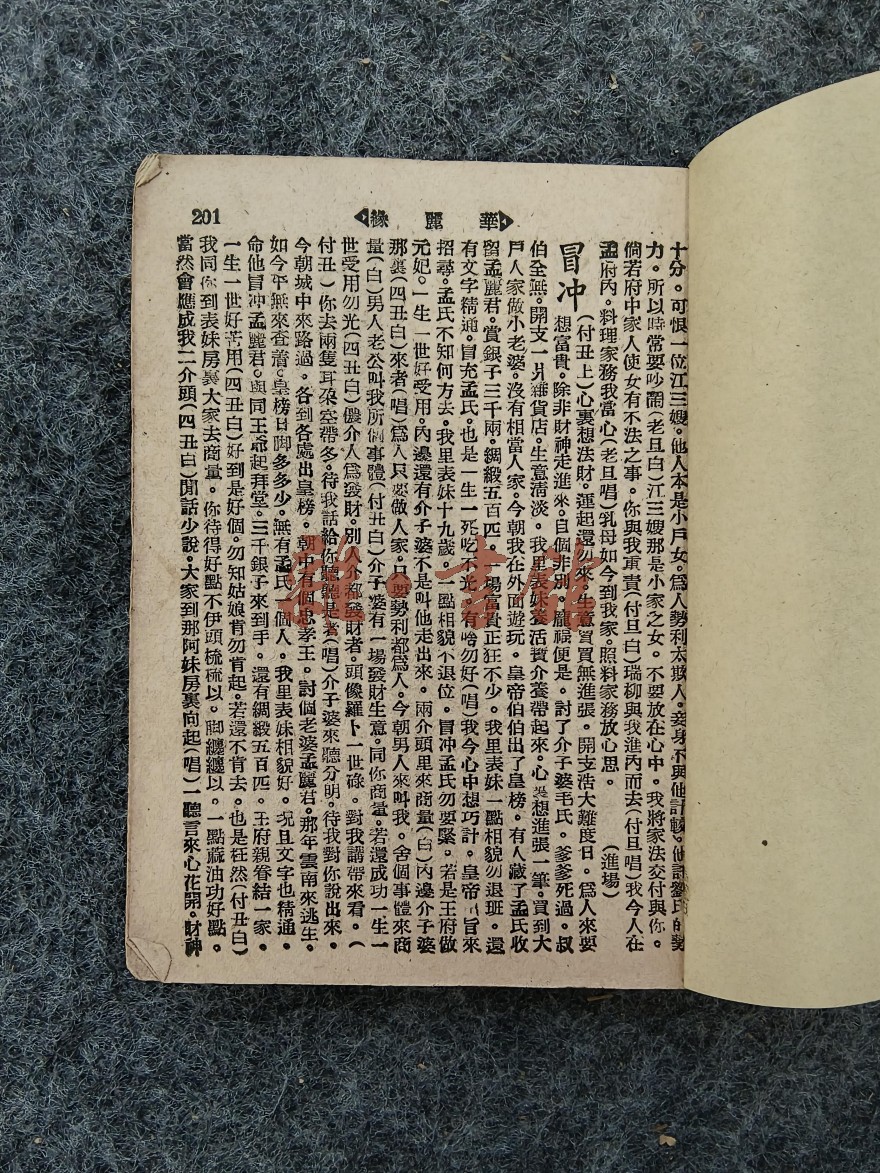 華麗緣
201
十分。可恨一位江三嫂。他人本是小戶女。為人勢利太欺人。妾身不與他計較。他許劉氏的勢
力。所以時常要吵鬧(老旦白)江三嫂那是小家之女。不要放在心中。我將家法交付與你。
倘若府中家人使女有不法之事。你與我重責(付旦白)瑞柳與我進內而去(付旦唱)我今人在
孟府內。料理家務我當心(老旦唱)乳母如今到我家。照料家務放心思。(進場)
冒冲 (付丑上)心裏想法財。運起還勿來。生意買買無進張。開支浩大難度日。為人來要
想富貴。除非財神走進來。自個非別。龐福便是。討了介子婆毛氏。爹爹死過。叔
伯全無。開支一爿雜貨店。生意清淡。我里表妹要活寶介養帶起來。心裏想進張一筆。買到大
戶人家做小老婆。沒有相當人家。今朝我在外面遊玩。皇帝伯伯出了皇榜。有人藏了孟氏收
留孟麗君。賞銀子三千兩。綢緞五百匹。一場富貴正狂不少。我里表妹一點相貌勿退班。還
有文字精通。冒充孟氏。也是一生一死吃不光。有啥勿好(唱)我今心中想巧計。皇帝 旨來
招尋。孟氏不知何方去。我里表妹十九歲。一點相貌不退位。冒冲孟氏勿要緊。若是王府做
元妃。一生一世好受用。內邊還有介子婆不是叫他走出來。兩介頭里來商量(白)內邊介子婆
那裏(四丑白)來者(唱)為人只要做人家。只要勢利都為人。今朝男人來叫我。舍個事體來商
量(白)男人老公叫我所個事體(付丑白)介子婆有一場發財生意。同你商量。若還成功一生一
世受用勿光(四丑白)儂介人為發財。別人介都發財者。頭像羅卜一世碌。對我講帶來看。(
付丑)你去兩隻耳朵空帶冬。待我話給你聽聽是者(唱)介子婆來聽分明。待我對你說出來。
今朝城中來路過。各到各處出皇榜。朝中有個忠孝王。討個老婆孟麗君。那年雲南來逃生。
如今平無來查着。皇榜日脚多多少。無有孟氏一個人。我里表妹相貌好。況且文字也精通。
命他冒冲孟麗君。與同王爺起拜堂。三千銀子來到手。還有綢緞五百匹。王府親眷結一家。
一生一世好苦用(四丑白)好到是好個。勿知姑娘肯勿肯起。若還不肯去。也是枉然(付丑白)
我同你到表妹房裏大家去商量。你待得好點不伊頭梳梳以。脚纏纏以。一點蔴油功好點。
當然會應成我二介頭(四丑白)閒話少說。大家到那阿妹房裏向起(唱)一聽言來心花開。財神